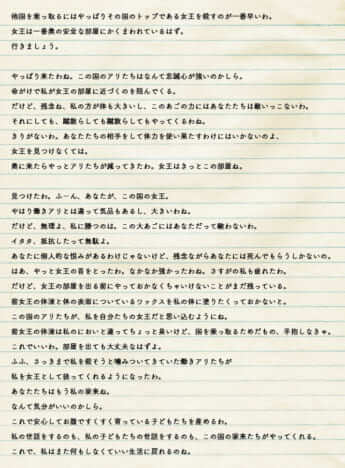 他国を乗っ取るにはやっぱりその国のトップである女王を殺すのが一番早いわ。
女王は一番奥の安全な部屋にかくまわれているはず。
行きましょう。
やっぱり来たわね。この国のアリたちはなんて忠誠心が強いのかしら。
命がけで私が女王の部屋に近づくのを阻んでくる。
だけど、残念ね、私の方が体も大きいし、このあごの力にはあなたたちは敵いっこないわ。
それにしても、蹴散らしても蹴散らしてもやってくるわね。
きりがないわ。あなたたちの相手をして体力を使い果たすわけにはいかないのよ、
女王を見つけなくては。
奥に来たらやっとアリたちが減ってきたわ。女王はきっとこの部屋ね。
見つけたわ。ふーん、あなたが、この国の女王。
やはり働きアリとは違って気品もあるし、大きいわね。
だけど、無理よ、私に勝つのは。この大あごにはあなただって敵わないわ。
イタタ、抵抗したって無駄よ。
あなたに個人的な恨みがあるわけじゃないけど、残念ながらあなたには死んでもらうしかないの。
はあ、やっと女王の首をとったわ。なかなか強かったわね。さすがの私も疲れたわ。
だけど、女王の部屋を出る前にやっておかなくちゃいけないことがまだ残っている。
前女王の体液と体の表面についているワックスを私の体に塗りたくっておかないと。
この国のアリたちが、私を自分たちの女王だと思い込むようにね。
前女王の体液は私のにおいと違ってちょっと臭いけど、国を乗っ取るためだもの、我慢しなきゃ。
これでいいわ。部屋を出ても大丈夫なはずよ。
ふふ、さっきまで私を殺そうと噛みついてきていた働きアリたちが
私を女王として扱ってくれるようになったわ。
あなたたちはもう私の家来ね。
なんて気分がいいのかしら。
これで安心してお腹ですくすく育っている子どもたちを産めるわ。
私の世話をするのも、私の子どもたちの世話をするのも、この国の家来たちがやってくれる。
これで、私はまた何もしなくていい生活に戻れるのね。